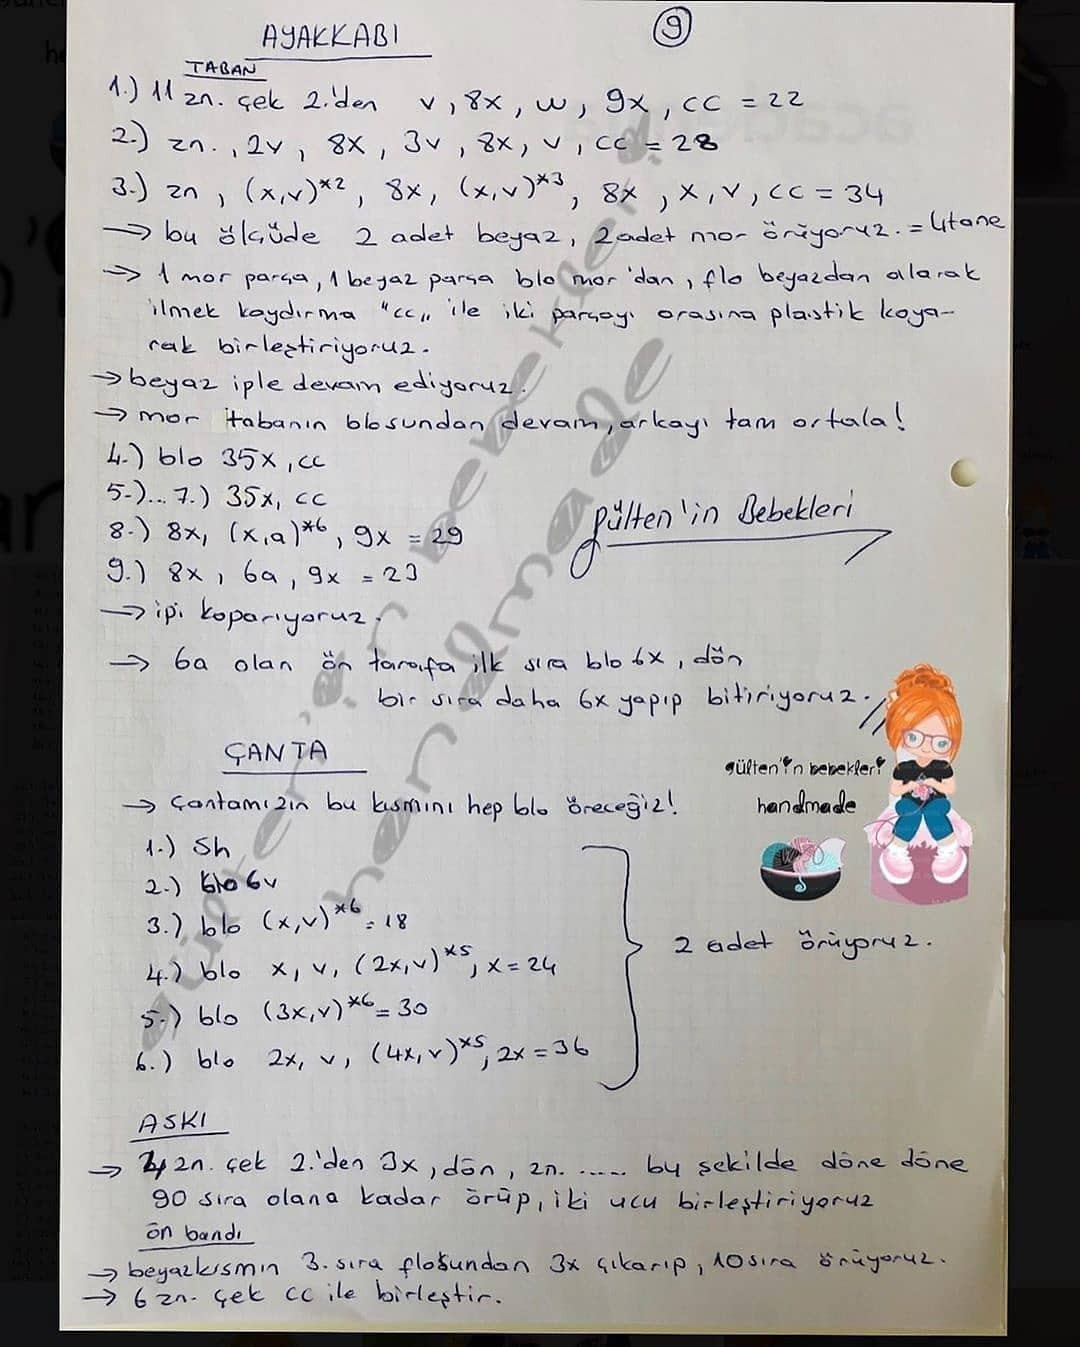 AYAKKABI
9
TABAN
1.) 11 zn. çek 2.'den v, 8x, w, 9x, cc = 22
2.) zn., 2v, 8x, 3v, 8x, v, cc = 28
3.) zn, (x,v)*2, 8x, (x,v)*3, 8x, x, v, cc = 34
→ bu ölçüde 2 adet beyaz, 2 adet mor örüyoruz. = 4 tane
→ 1 mor parça, 1 beyaz parça blo mor'dan, flo beyazdan alarak
ilmek kaydırma "cc„ ile iki parçayı arasına plastik koya-
rak birleştiriyoruz.
→ beyaz iple devam ediyoruz.
→ mor tabanın blosundan devam, arkayı tam ortala!
4.) blo 35x, cc
5.)... 7.) 35x, cc
8.) 8x, (x,a)*6, 9x = 29
9.) 8x, 6a, 9x = 23
→ ipi koparıyoruz.
→ 6a olan ön tarafa ilk sıra blo 6x, dön
bir sıra daha 6x yapıp bitiriyoruz.
Gülten'in Bebekleri
gülten'in bebekleri
handmade
ÇANTA
→ Çantamızın bu kısmını hep blo öreceğiz!
1.) Sh
2.) blo 6v
3.) blo (x,v)*6 = 18
4.) blo x, v, (2x,v)*5, x = 24
5.) blo (3x,v)*6 = 30
6.) blo 2x, v, (4x,v)*5, 2x = 36
2 adet örüyoruz.
ASKI
→ 4 zn. çek 2.'den 3x, dön, zn. ..... bu şekilde döne döne
90 sıra olana kadar örüp, iki ucu birleştiriyoruz
ön bandı
→ beyaz kısmın 3. sıra flosundan 3x çıkarıp, 10 sıra örüyoruz.
→ 6 zn. çek cc ile birleştir.
gülten'in bebekleri
handmade